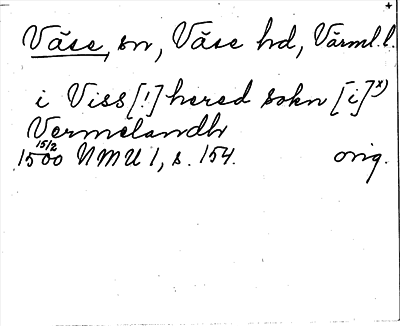 Väse, sn, Väse hd, Värml. l.
i Viss [!] hered sokn [i] x)
Vermelandh
15/2
1500 NMU 1, s. 154. orig.